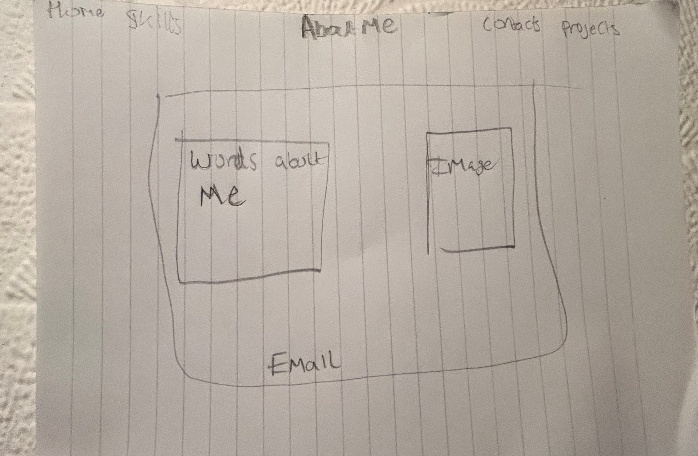 Home Skills About Me Contacts Projects
Words about
Me
Image
Email